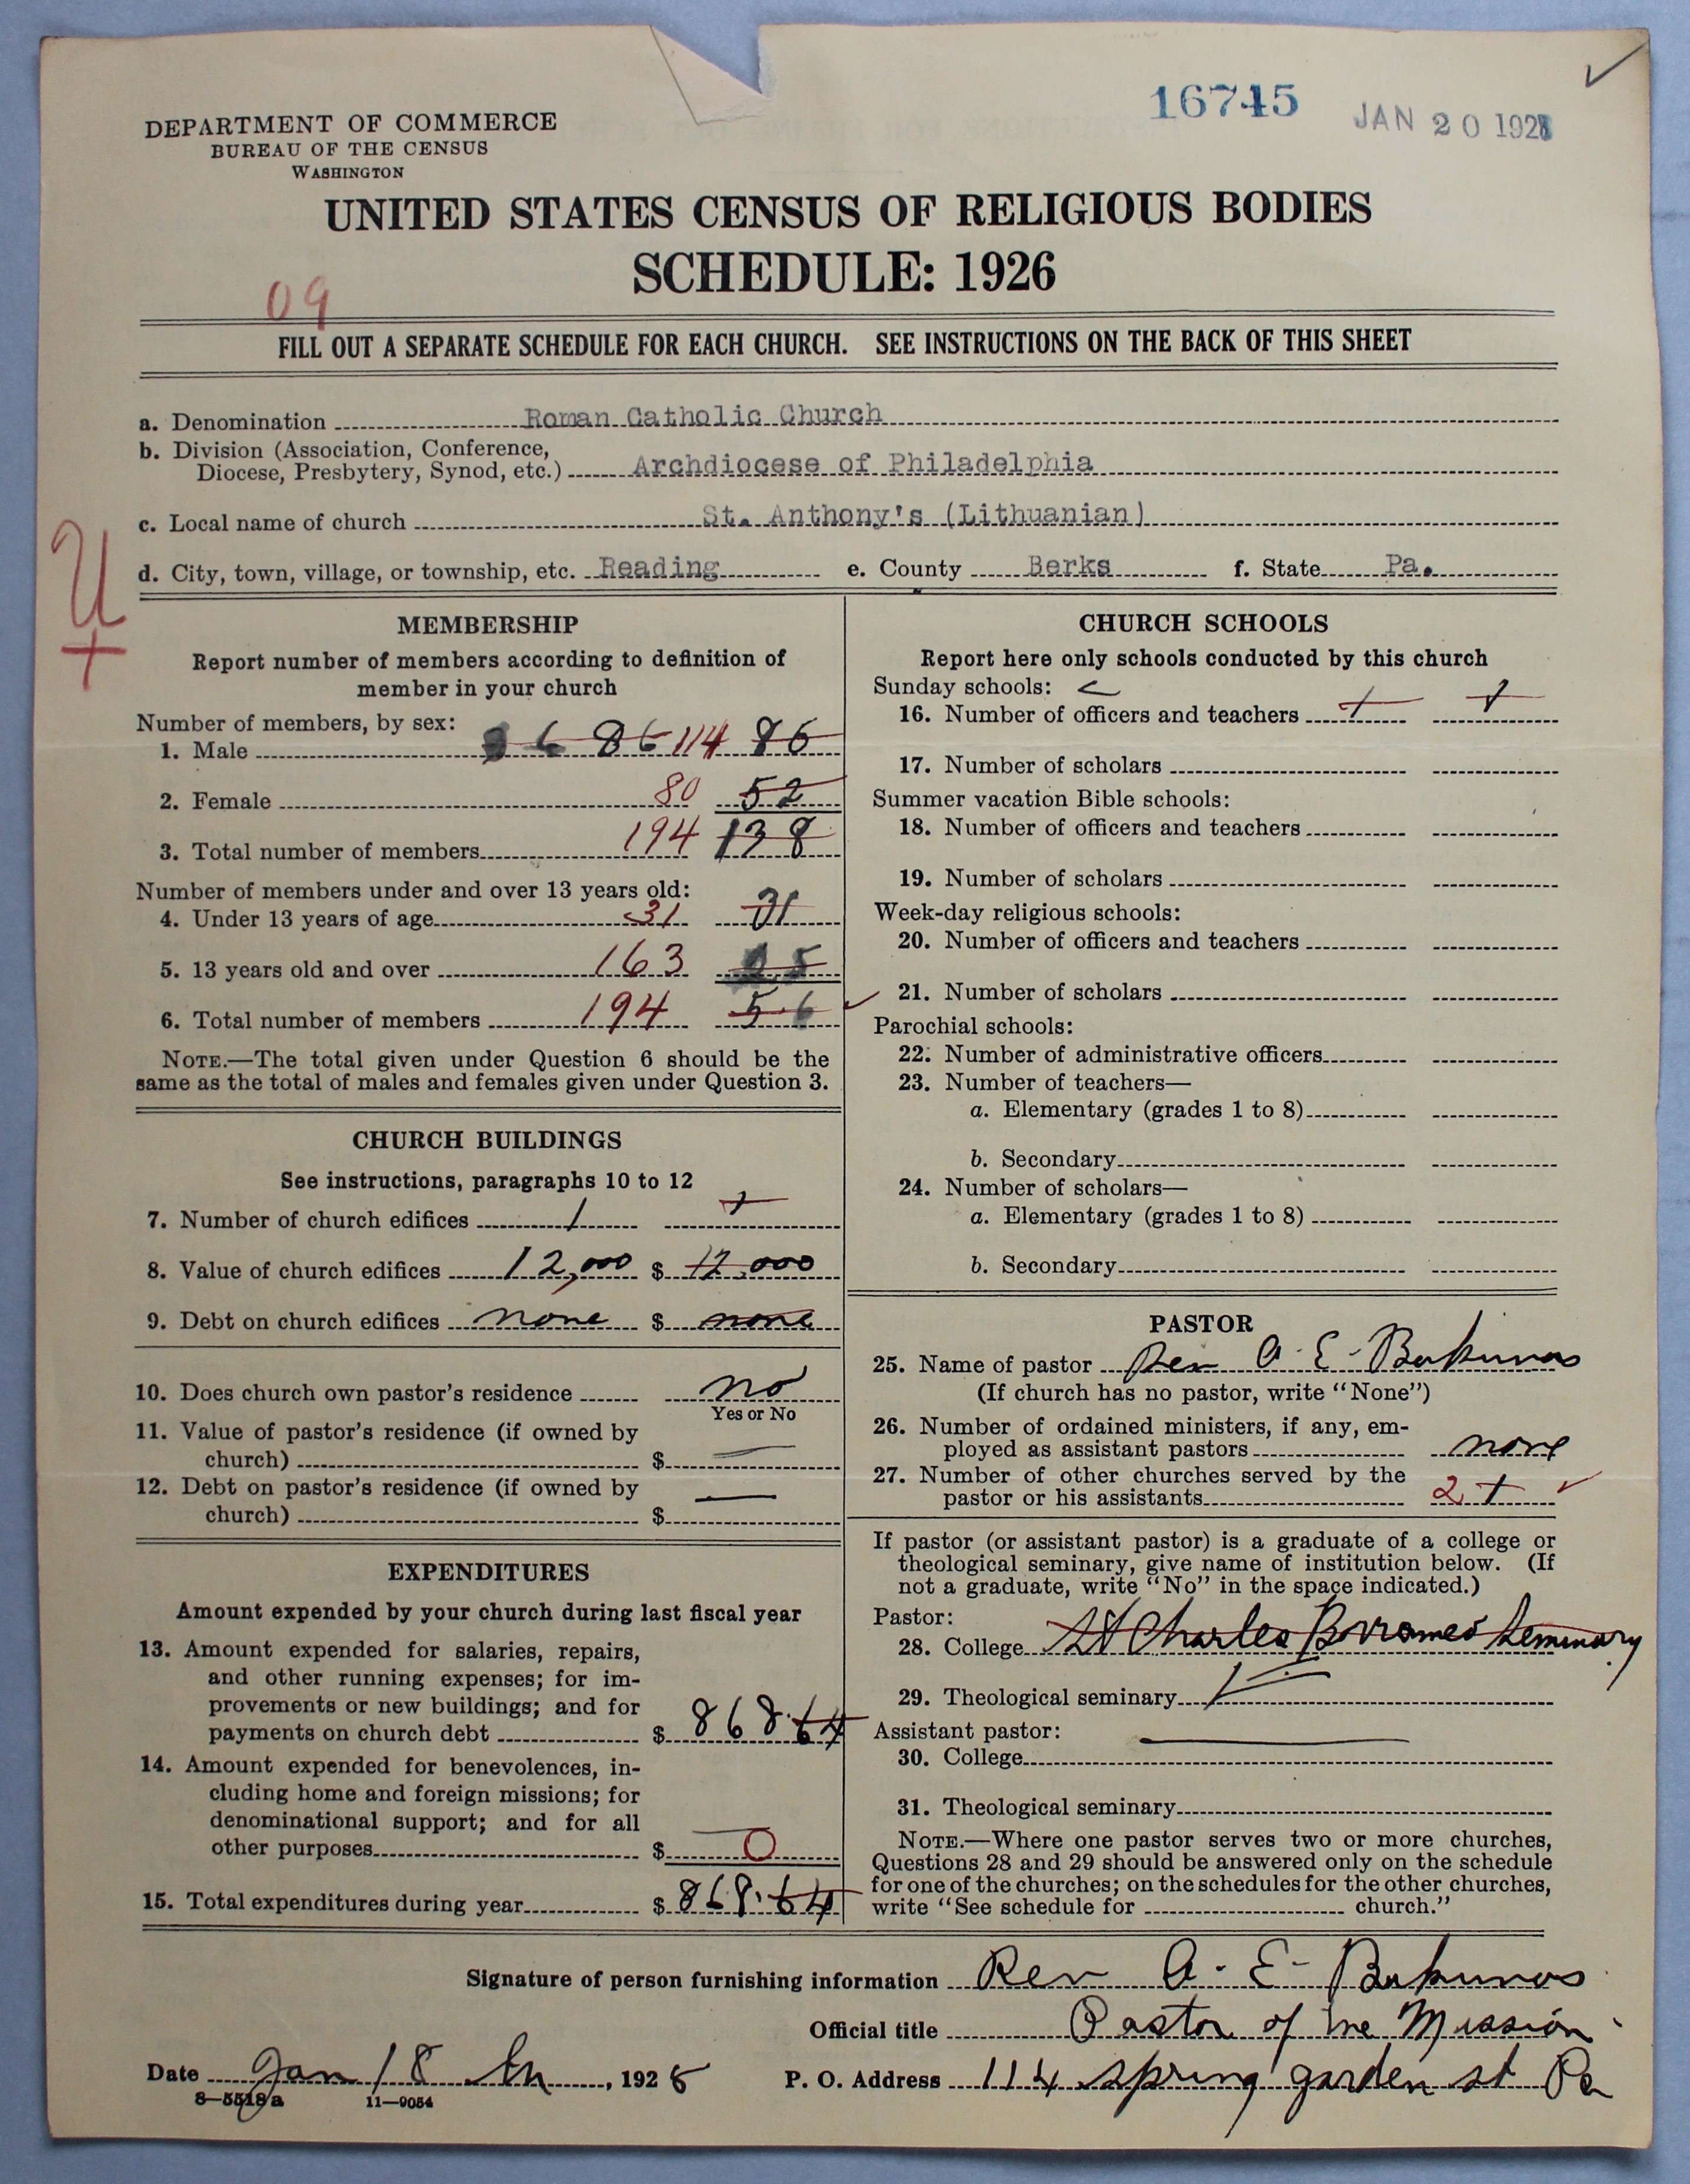 16745 JAN 20 1928
DEPARTMENT OF COMMERCE
BUREAU OF THE CENSUS
WASHINGTON
UNITED STATES CENSUS OF RELIGIOUS BODIES
SCHEDULE: 1926
09
FILL OUT A SEPARATE SCHEDULE FOR EACH CHURCH. SEE INSTRUCTIONS ON THE BACK OF THIS SHEET
a. Denomination Roman Catholic Church
b. Division (Association, Conference,
Diocese, Presbytery, Synod, etc.) Archdiocese of Philadelphia
c. Local name of church St. Anthony's (Lithuanian)
d. City, town, village, or township, etc. Reading e. County Berks f. State Pa.
U
+
MEMBERSHIP
Report number of members according to definition of
member in your church
Number of members, by sex:
1. Male 86 86 114 86
2. Female 80 52
3. Total number of members 194 138
Number of members under and over 13 years old:
4. Under 13 years of age 31 31
5. 13 years old and over 163 25
6. Total number of members 194 56
NOTE.—The total given under Question 6 should be the
same as the total of males and females given under Question 3.
CHURCH BUILDINGS
See instructions, paragraphs 10 to 12
7. Number of church edifices 1 1
8. Value of church edifices 12,000 $ 12,000
9. Debt on church edifices none $ none
10. Does church own pastor's residence no
Yes or No
11. Value of pastor's residence (if owned by
church) $ —
12. Debt on pastor's residence (if owned by
church) $ —
EXPENDITURES
Amount expended by your church during last fiscal year
13. Amount expended for salaries, repairs,
and other running expenses; for im-
provements or new buildings; and for
payments on church debt $ 868.64
14. Amount expended for benevolences, in-
cluding home and foreign missions; for
denominational support; and for all
other purposes $ 0
15. Total expenditures during year $ 868.64
CHURCH SCHOOLS
Report here only schools conducted by this church
Sunday schools:
16. Number of officers and teachers 1 1
17. Number of scholars
Summer vacation Bible schools:
18. Number of officers and teachers
19. Number of scholars
Week-day religious schools:
20. Number of officers and teachers
21. Number of scholars
Parochial schools:
22. Number of administrative officers
23. Number of teachers—
a. Elementary (grades 1 to 8)
b. Secondary
24. Number of scholars—
a. Elementary (grades 1 to 8)
b. Secondary
PASTOR
25. Name of pastor Rev A. E. Bukunas
(If church has no pastor, write "None")
26. Number of ordained ministers, if any, em-
ployed as assistant pastors none
27. Number of other churches served by the
pastor or his assistants 2 1
If pastor (or assistant pastor) is a graduate of a college or
theological seminary, give name of institution below. (If
not a graduate, write "No" in the space indicated.)
Pastor:
28. College St Charles Borromeo Seminary
29. Theological seminary
Assistant pastor: —
30. College
31. Theological seminary
NOTE.—Where one pastor serves two or more churches,
Questions 28 and 29 should be answered only on the schedule
for one of the churches; on the schedules for the other churches,
write "See schedule for church."
Signature of person furnishing information Rev A. E. Bukunas
Official title Pastor of the Mission
Date Jan 18 th, 1928 P. O. Address 114 spring garden st Pa
8—5518 a 11—9054